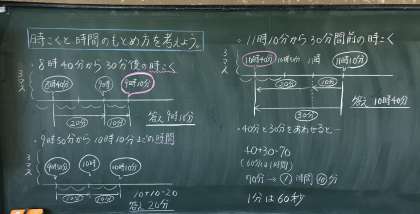 時こくと時間のもとめ方を考えよう。
・8時40分から30分後の時こく
3マス
8時40分 9時 9時10分
20分 10分
答え 9時10分
・9時50分から10時10分までの時間
3マス
9時50分 10時 10時10分
10分 10分
10+10=20
答え 20分
・11時10分から30分間前の時こく
3マス
10時40分 11時 11時10分
20分 10分
30分
答え 10時40分
・40分と30分をあわせると…
40+30=70
(60分は1時間)
70分→1時間10分
1分は60秒